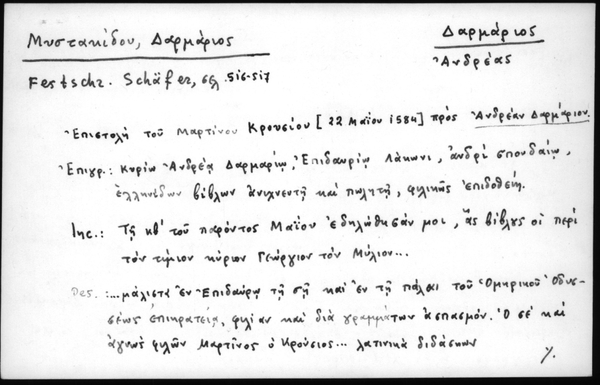 Μυστακίδου, Δαρμάριος
Δαρμάριος
Ἀνδρέας
Festschr. Schäfer, σελ. 516-517
Ἐπιστολὴ τοῦ Μαρτίνου Κρουσίου [22 Μαΐου 1584] πρὸς Ἀνδρέαν Δαρμάριον.
Ἐπιγρ.: Κυρίῳ Ἀνδρέᾳ Δαρμαρίῳ, Ἐπιδαυρίῳ Λάκωνι, ἀνδρὶ σπουδαίῳ,
βίβλων ἀνιχνευτῇ καὶ πωλητῇ, φιλικῶς ἐπιδοθείη.
Inc.: Τῇ κβ' τοῦ παρόντος Μαΐου ἐδηλώθησάν μοι, ἃς βίβλους οἱ περὶ
τὸν τίμιον κύριον Γεώργιον τὸν Μύλιον...
Des.: ...μάλιστα ἐν Ἐπιδαύρῳ τῇ σῇ καὶ ἐν τῇ πάλαι τοῦ Ὁμηρικοῦ Ὀδυσ-
σέως ἐπικρατείᾳ, φιλίαν καὶ διὰ γραμμάτων ἀσπασμόν. Ὁ σὲ καὶ
ἁγνῶς φιλῶν Μαρτῖνος ὁ Κρούσιος... λατινικὰ διδάσκων